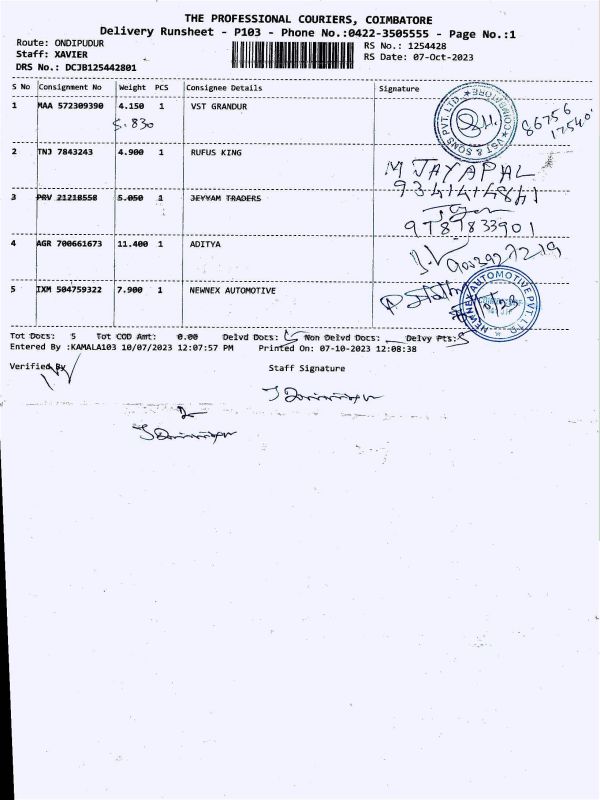 THE PROFESSIONAL COURIERS, COIMBATORE
Delivery Runsheet - P103 - Phone No.:0422-3505555 - Page No.:1
Route: ONDIPUDUR RS No.: 1254428
Staff: XAVIER RS Date: 07-Oct-2023
DRS No.: DCJB125442801
S No Consignment No Weight PCS Consignee Details Signature
1 MAA 572309390 4.150 1 VST GRANDUR
5.830
VST & SONS PVT. LTD. ★ COIMBATORE ★
86756
17540
2 TNJ 7843243 4.900 1 RUFUS KING
M JAYAPAL
9344144841
3 PRV 21218558 5.050 1 JEYYAM TRADERS
9787833901
4 AGR 700661673 11.400 1 ADITYA
9003927219
5 IXM 504759322 7.900 1 NEWNEX AUTOMOTIVE
NEWNEX AUTOMOTIVE PVT. LTD.
Tot Docs: 5 Tot COD Amt: 0.00 Delvd Docs: 5 Non Delvd Docs: Delvy Pts: 5
Entered By :KAMALA103 10/07/2023 12:07:57 PM Printed On: 07-10-2023 12:08:38
Verified By Staff Signature